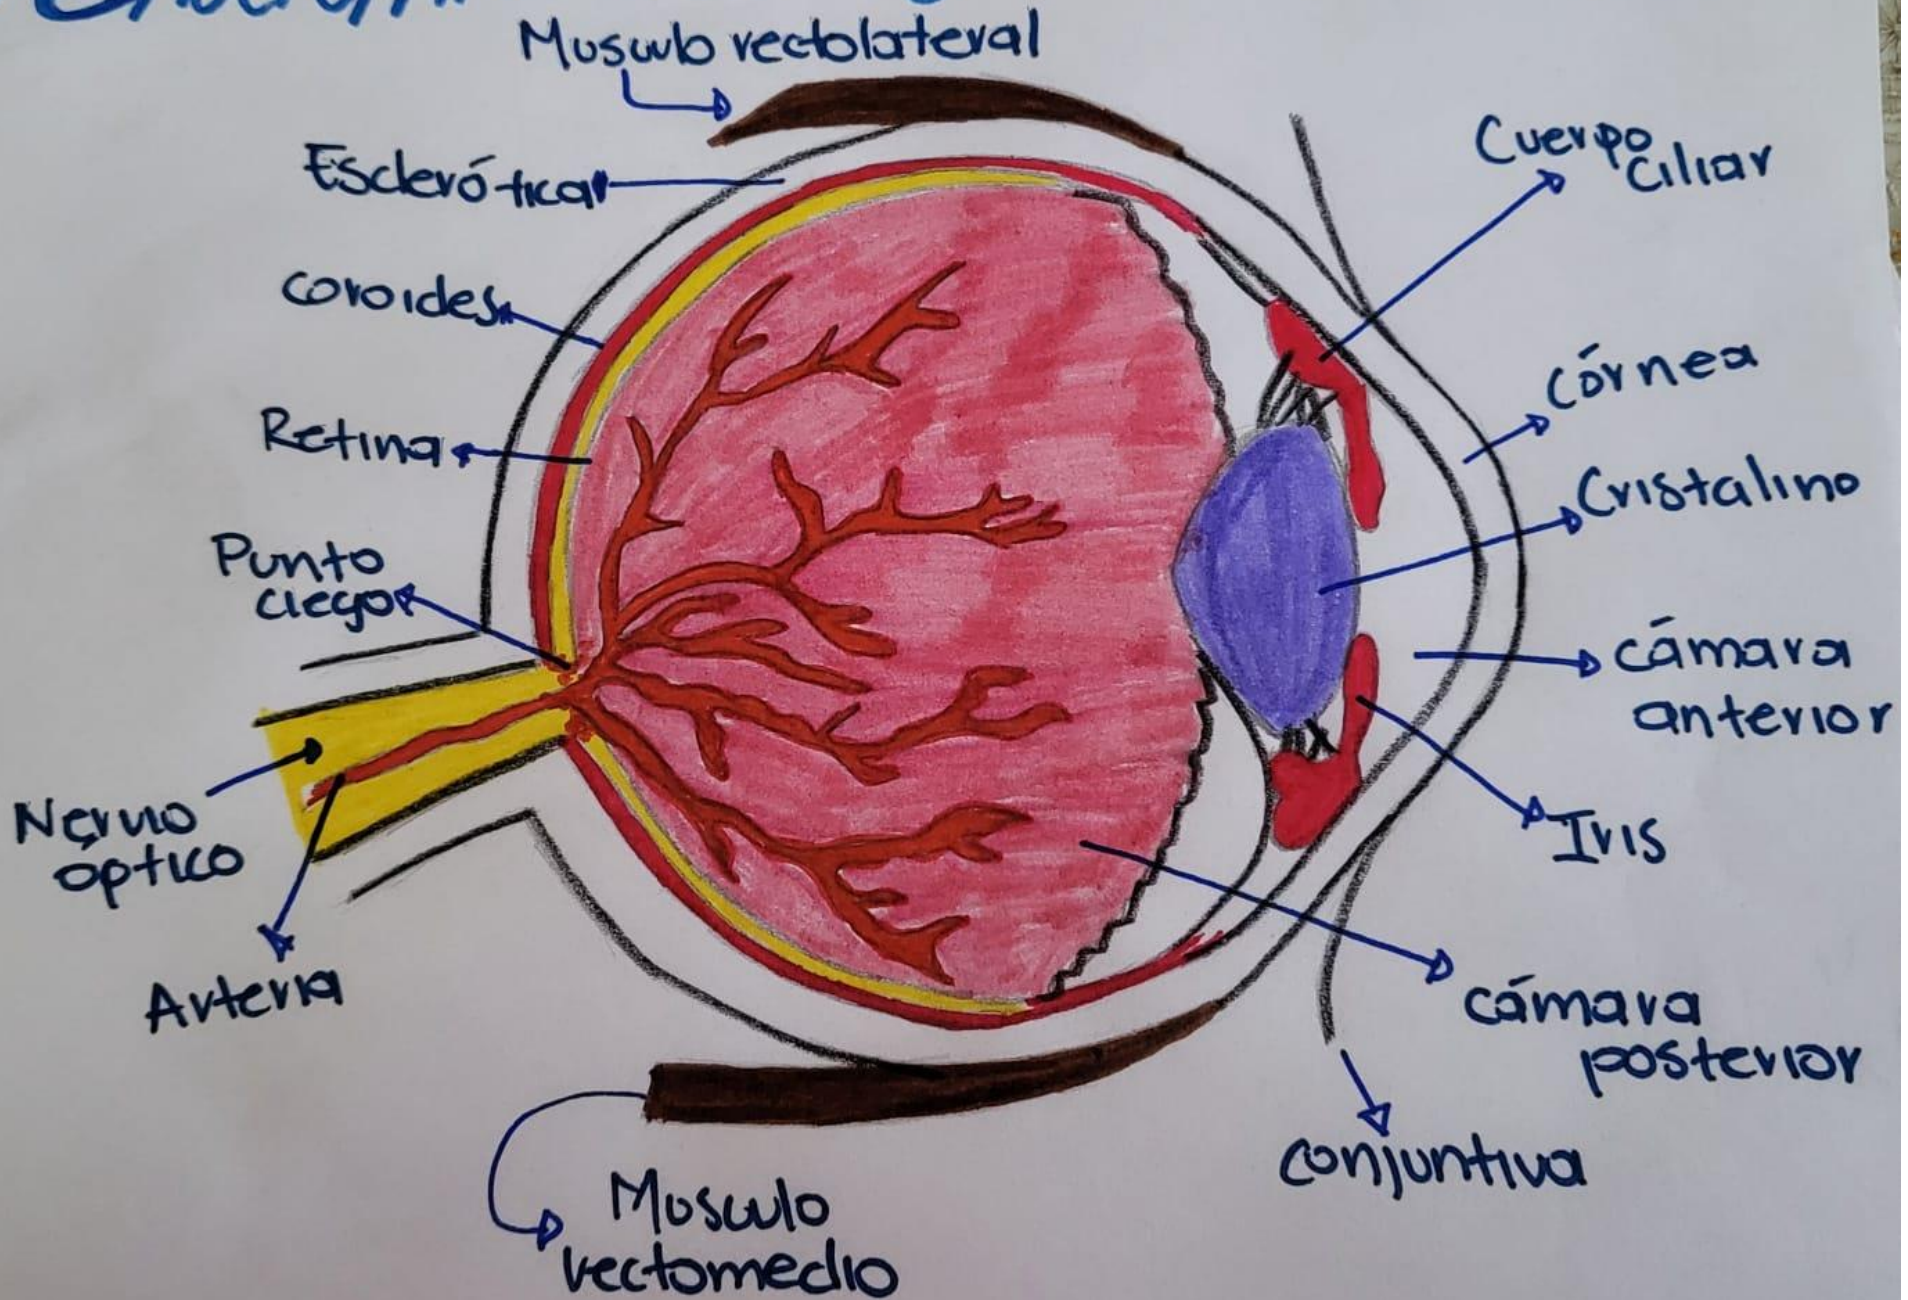 Musculo rectolateral
Esclerótica
coroides
Retina
Punto
ciego
Nervio
óptico
Arteria
Musculo
rectomedio
Cuerpo
Ciliar
córnea
Cristalino
cámara
anterior
Iris
cámara
posterior
conjuntiva